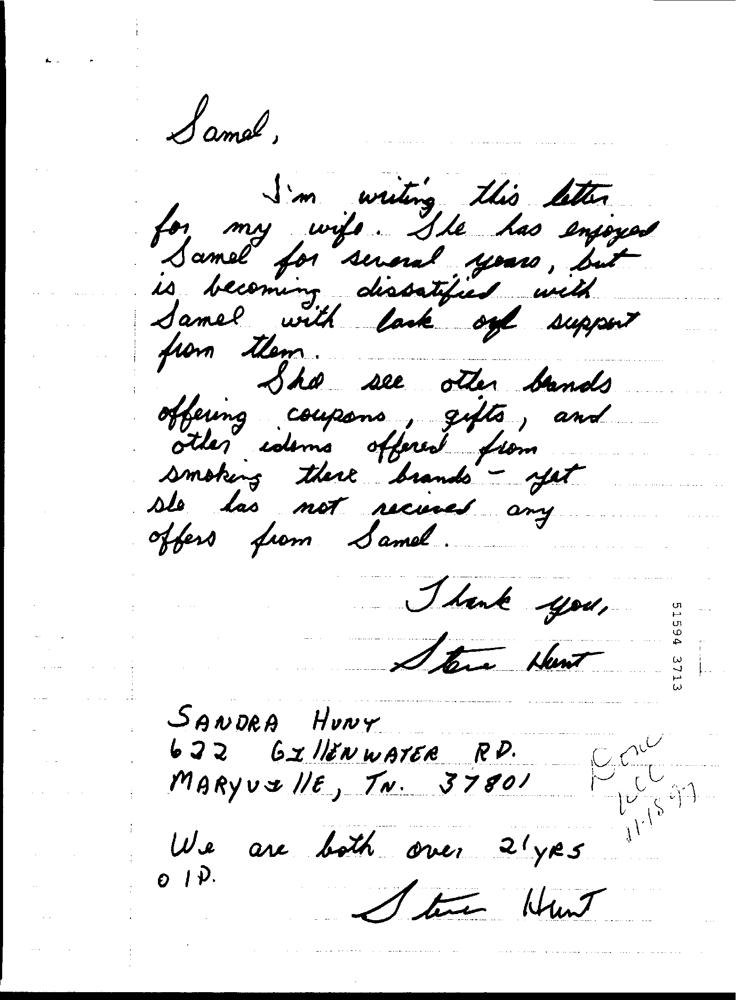 Samel,
I'm writing this letter
for my wife. She has enjoyed
Samel for several years, but
is becoming dissatified with
Samel with lack of support
from them.
She see other brands
offering coupons, gifts, and
other idems offered from
smoking there brands - yet
she has not recieved any
offers from Samel.
Thank you,
Steve Hunt
51594 3713
SANDRA HUNT
622 GILLENWATER RD.
MARYVILLE, TN. 37801
Done
11-18-97
We are both over 21 yrs
old.
Steve Hunt